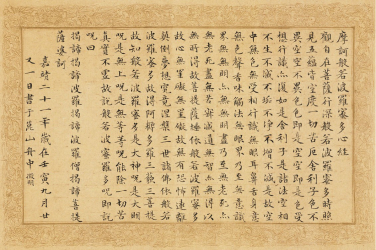 摩訶般若波羅蜜多心經
觀自在菩薩行深般若波羅蜜多時照
見五蘊皆空度一切苦厄舍利子色不
異空空不異色色即是空空即是色受
想行識亦復如是舍利子是諸法空相
不生不滅不垢不淨不增不減是故空
中無色無受想行識無眼耳鼻舌身意
無色聲香味觸法無眼界乃至無意識
界無無明亦無無明盡乃至無老死亦
無老死盡無苦集滅道無智亦無得以
無所得故菩提薩埵依般若波羅蜜多
故心無罣礙無罣礙故無有恐怖遠離
顛倒夢想究竟涅槃三世諸佛依般若
波羅蜜多故得阿耨多羅三藐三菩提
故知般若波羅蜜多是大神呪是大明
呪是無上呪是無等等呪能除一切苦
真實不虛故說般若波羅蜜多呪即說
呪曰
揭諦揭諦波羅揭諦波羅僧揭諦菩提
薩婆訶
嘉靖二十一年歲在壬寅九月廿
又一日書于崑山舟中 徵明